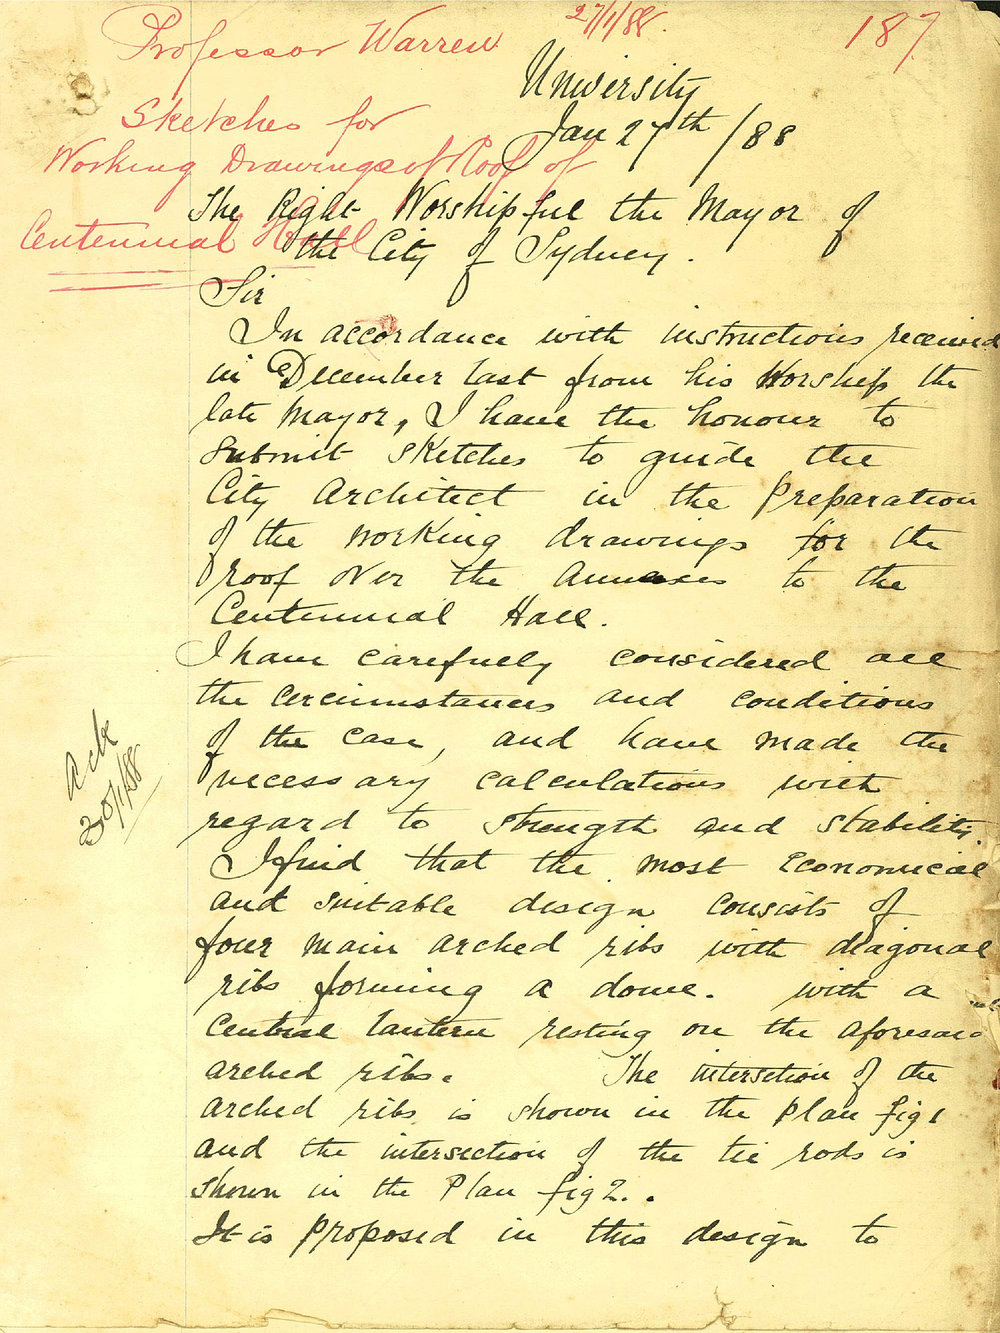 27/1/88.
187.
Professor Warren
Sketches for
Working Drawings of Roof of
Centennial Hall
University
Jan 27th /88
The Right Worshipful the Mayor of
the City of Sydney.
Sir
In accordance with instructions received
in December last from his Worship the
late Mayor, I have the honour to
submit sketches to guide the
City Architect in the preparation
of the working drawings for the
roof over the Annexes to the
Centennial Hall.
I have carefully considered all
the circumstances and conditions
of the case, and have made the
necessary calculations with
regard to strength and stability.
I find that the most economical
and suitable design consists of
four main arched ribs with diagonal
ribs forming a dome. with a
central lantern resting on the aforesaid
arched ribs. The intersetion of the
arched ribs is shown in the plan fig 1
and the intersection of the tie rods is
shown in the Plan fig 2..
It is proposed in this design to
Ack
30/1/88